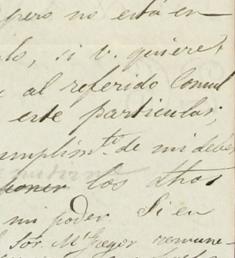 pero no está en
lo, si v. quiere,
al referido Consul
este particular,
cumplim.to de mi deber
poner los dhos
mi poder. Si en
Sor. McGregor remune-